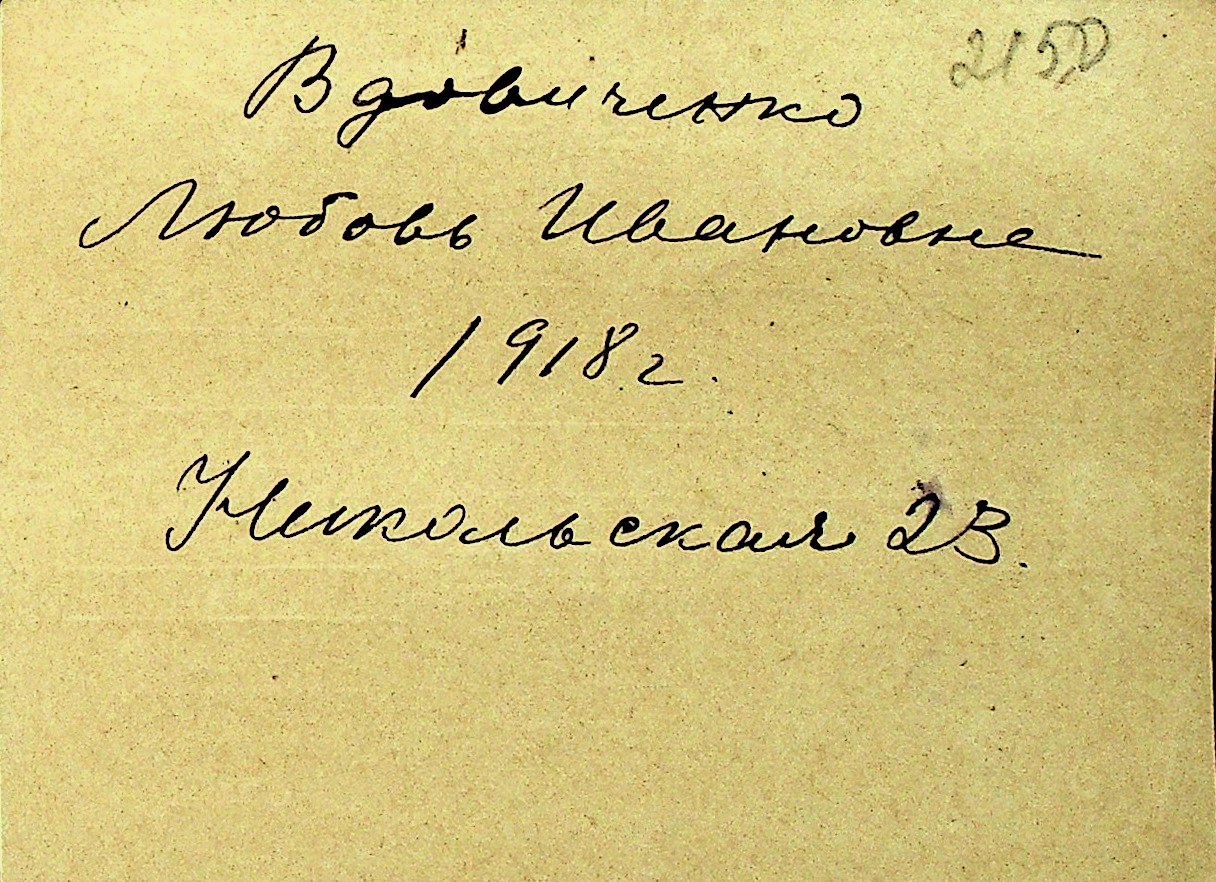 215D
Вдовиченко
Любовь Ивановне
1918 г.
Никольская 23.